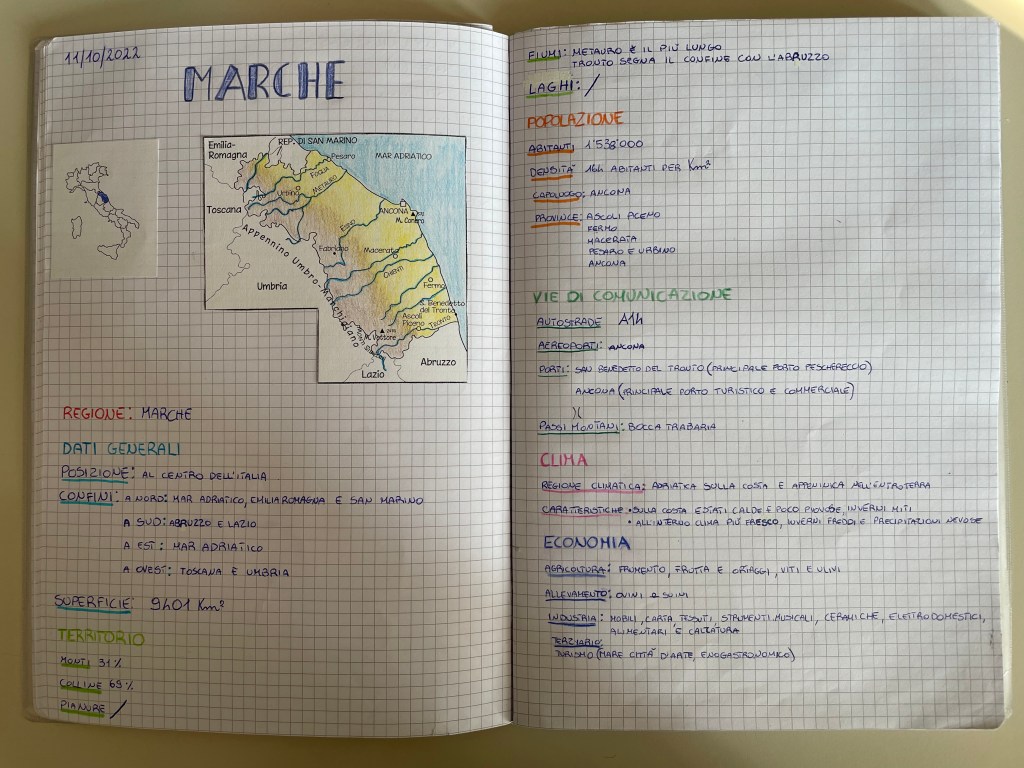 11/10/2022
MARCHE
Emilia-
Romagna
REP. DI SAN MARINO
MAR ADRIATICO
Pesaro
FOGLIA
Urbino
METAURO
Toscana
ANCONA
M. Conero
Esino
Fabriano
Macerata
CHIENTI
Appennino Umbro-Marchigiano
Umbria
Fermo
S. Benedetto
del Tronto
Ascoli
Piceno
TRONTO
M. Vettore
Lazio
Abruzzo
REGIONE: MARCHE
DATI GENERALI
POSIZIONE: AL CENTRO DELL'ITALIA
CONFINI: A NORD: MAR ADRIATICO, EMILIA ROMAGNA E SAN MARINO
A SUD: ABRUZZO E LAZIO
A EST: MAR ADRIATICO
A OVEST: TOSCANA E UMBRIA
SUPERFICIE: 9401 Km²
TERRITORIO
MONTI 31%
COLLINE 69%
PIANURE /
FIUMI: METAURO È IL PIÙ LUNGO
TRONTO SEGNA IL CONFINE CON L'ABRUZZO
LAGHI: /
POPOLAZIONE
ABITANTI 1'538'000
DENSITÀ 164 ABITANTI PER Km²
CAPOLUOGO: ANCONA
PROVINCE: ASCOLI PICENO
FERMO
MACERATA
PESARO E URBINO
ANCONA
VIE DI COMUNICAZIONE
AUTOSTRADE A14
AEREOPORTI: ANCONA
PORTI: SAN BENEDETTO DEL TRONTO (PRINCIPALE PORTO PESCHERECCIO)
ANCONA (PRINCIPALE PORTO TURISTICO E COMMERCIALE)
)(
PASSI MONTANI: BOCCA TRABARIA
CLIMA
REGIONE CLIMATICA: ADRIATICA SULLA COSTA E APPENINICA NELL'ENTROTERRA
CARATTERISTICHE • SULLA COSTA ESTATI CALDE E POCO PIOVOSE, INVERNI MITI
• ALL'INTERNO CLIMA PIÙ FRESCO, INVERNI FREDDI E PRECIPITAZIONI NEVOSE
ECONOMIA
AGRICOLTURA: FRUMENTO, FRUTTA E ORTAGGI, VITI E ULIVI
ALLEVAMENTO: OVINI E SUINI
INDUSTRIA: MOBILI, CARTA, TESSUTI, STRUMENTI MUSICALI, CERAMICHE, ELETTRODOMESTICI,
ALIMENTARI E CALZATURA
TERZIARIO:
TURISMO (MARE CITTÀ D'ARTE, ENOGASTRONOMICO)